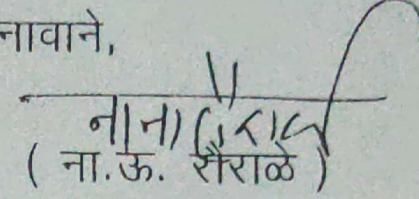 नावाने,
( ना.ऊ. सैराळे )